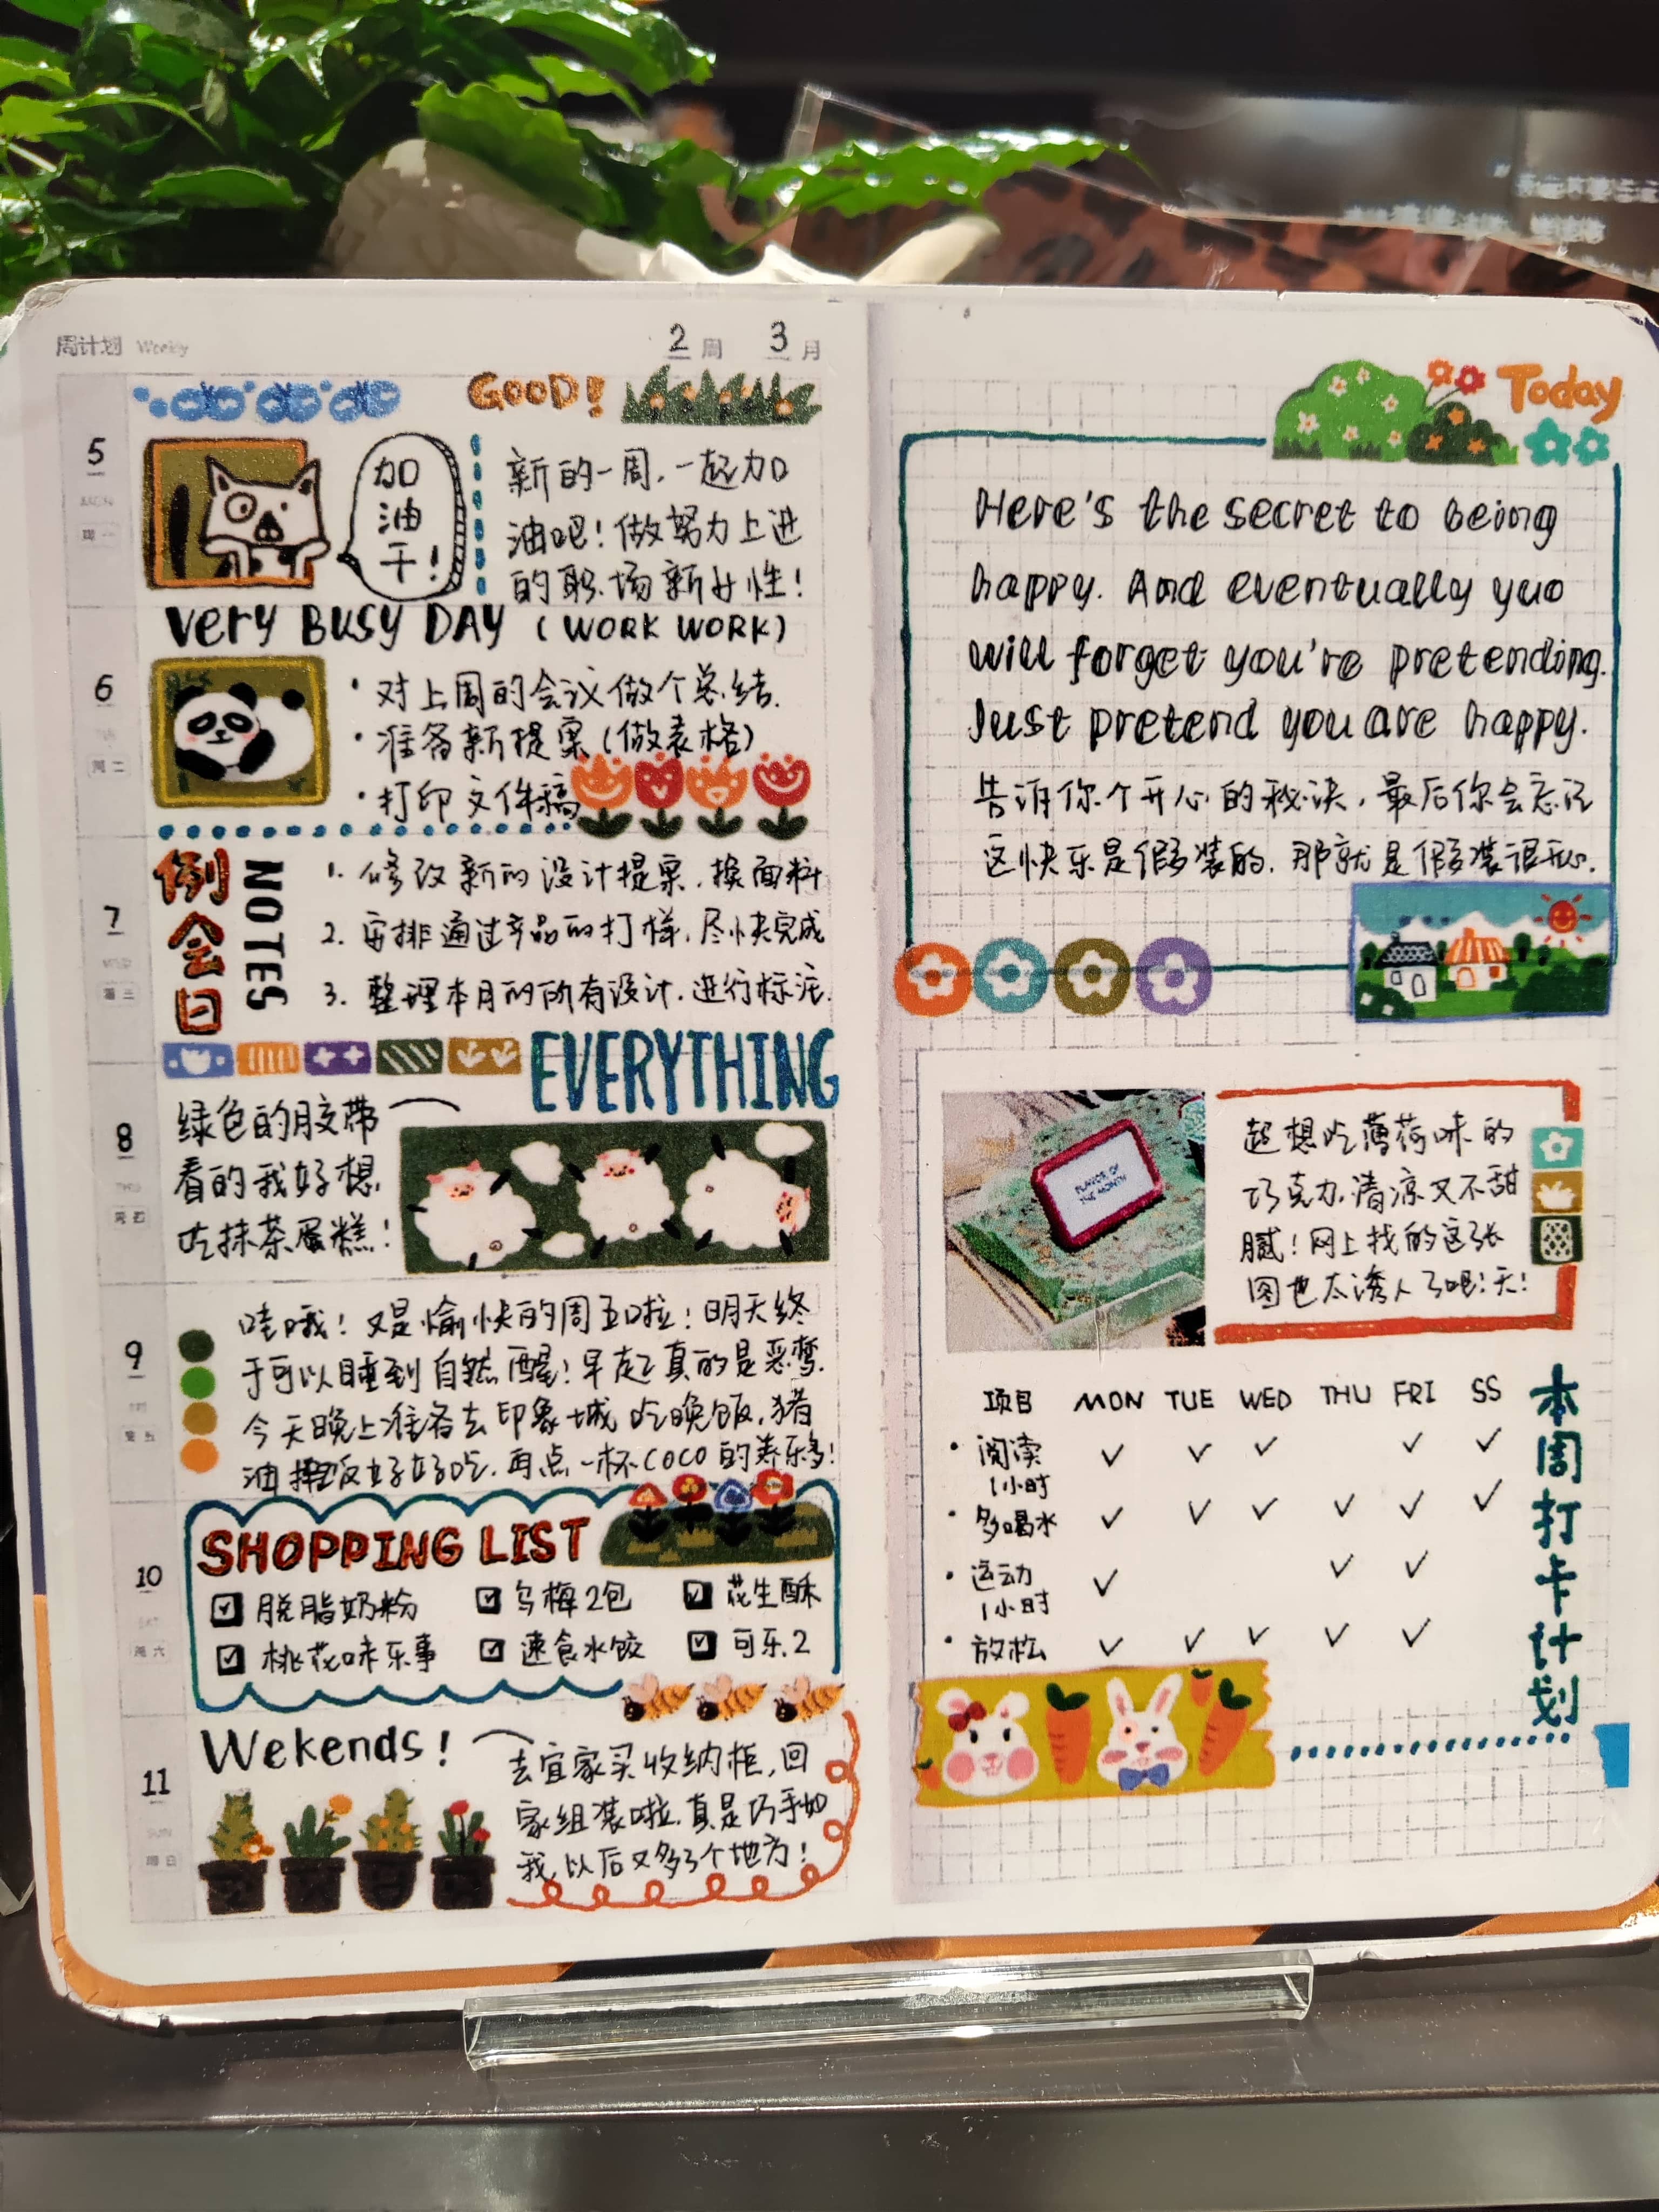 周计划 Weekly
2 周 3 月
GOOD!
5
周一
加
油
干!
新的一周,一起加
油吧!做努力上进
的职场新女性!
Very BUSY DAY (WORK WORK)
6
周二
·对上周的会议做个总结.
·准备新提案(做表格)
·打印文件稿
7
周三
例会日
NOTES
1. 修改新的设计提案,换面料
2. 安排通过产品的打样,尽快完成
3. 整理本月的所有设计,进行标注.
EVERYTHING
8
THU
周四
绿色的胶带
看的我好想
吃抹茶蛋糕!
9
周五
哇哦!又是愉快的周五啦!明天终
于可以睡到自然醒!早起真的是恶梦.
今天晚上准备去印象城吃晚饭,猪
油拌饭好好吃,再点一杯COCO的养乐多!
10
周六
SHOPPING LIST
☑ 脱脂奶粉 ☑ 乌梅2包 ☑ 花生酥
☑ 桃花味乐事 ☑ 速食水饺 ☑ 可乐.2
11
SUN
周日
Wekends!
去宜家买收纳柜,回
家组装啦,真是巧手如
我,以后又多了个地方!
Today
Here's the secret to being
happy. And eventually yuo
will forget you're pretending.
Just pretend you are happy.
告诉你个开心的秘诀,最后你会忘记
这快乐是假装的,那就是假装很开心.
FLAVOR OF
THE MONTH
超想吃薄荷味的
巧克力,清凉又不甜
腻!网上找的这张
图也太诱人了吧!天!
项目 MON TUE WED THU FRI SS
·阅读 ✓ ✓ ✓ ✓ ✓
1小时
·多喝水 ✓ ✓ ✓ ✓ ✓ ✓
·运动 ✓ ✓ ✓
1小时
·放松 ✓ ✓ ✓ ✓ ✓
本周打卡计划